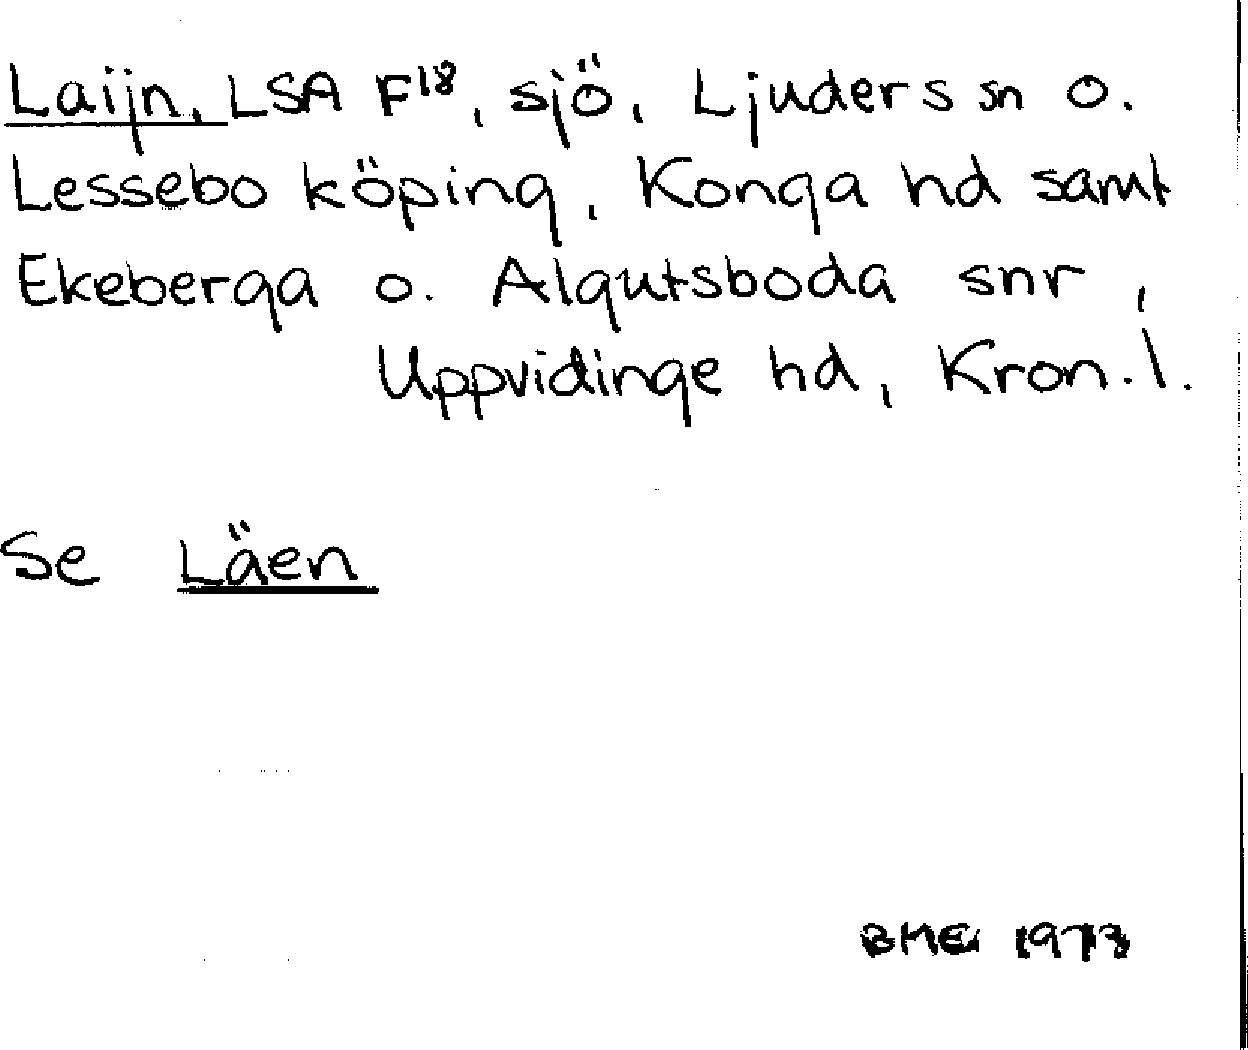 Laijn, LSA F18, sjö, Ljuders sn o.
Lessebo köping, Konga hd samt
Ekeberga o. Algutsboda snr,
Uppvidinge hd, Kron. l.
Se Läen
BME 1973